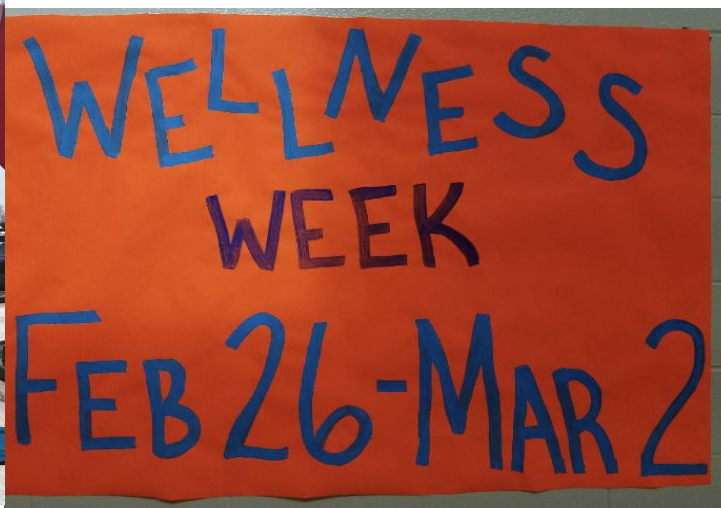 WELLNESS
WEEK
FEB 26-MAR 2